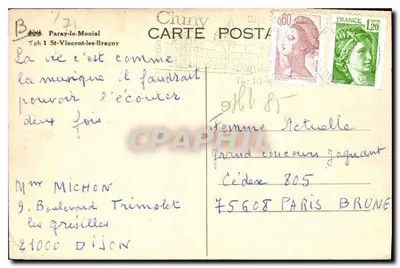 B /71
Paray-le-Monial
Tph 1 St-Vincent-les-Bragny
Cluny
CARTE POSTA
0,60
FRANCE
1,20
La vie c'est comme
la musique il faudrait
pouvoir l'écouter
deux fois.
Mme MICHON
9, Boulevard Trimolet
les grésilles
21000 DIJON
85
Femme Actuelle
grand concours gagnant
Cédex 805
75608 PARIS BRUNE
CPAPHIL